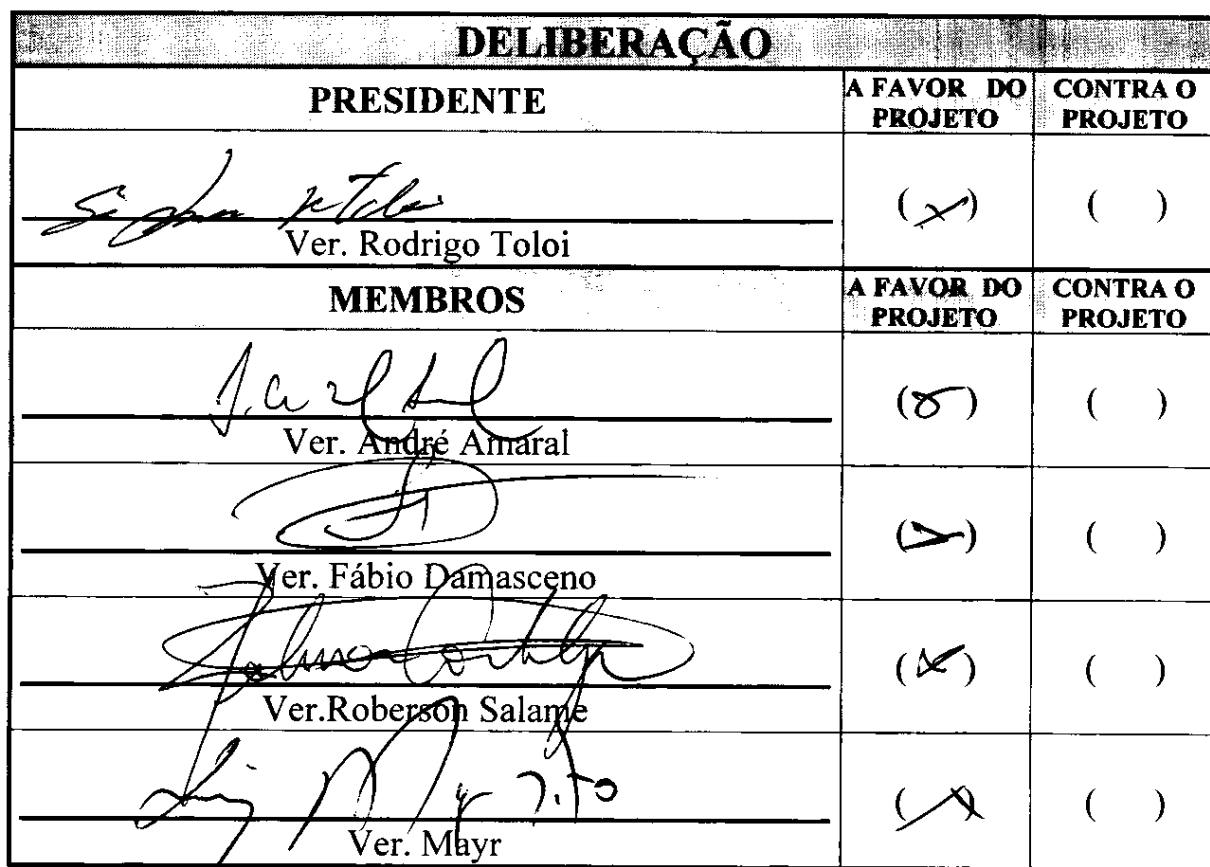 DELIBERAÇÃO
PRESIDENTE
A FAVOR DO
PROJETO
CONTRA O
PROJETO
(x)
( )
Ver. Rodrigo Toloi
MEMBROS
A FAVOR DO
PROJETO
CONTRA O
PROJETO
(x)
( )
Ver. André Amaral
(x)
( )
Ver. Fábio Damasceno
(x)
( )
Ver.Roberson Salame
(x)
( )
Ver. Mayr